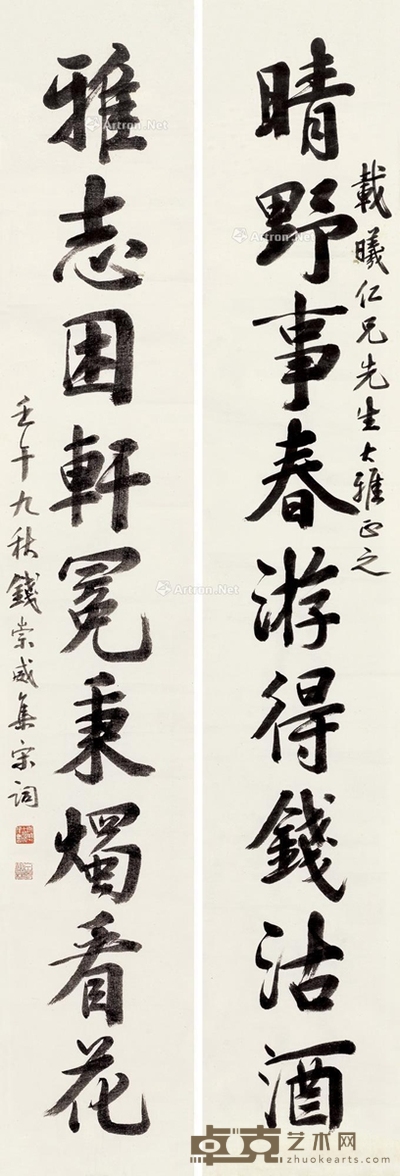 載曦仁兄先生大雅正之
晴野事春游得錢沽酒
雅志困軒冕秉燭看花
壬午九秋錢崇威集宋詞
Artron.Net
Artron.Net
Artron.Net
Artron.Net
卓克艺术网
zhuokearts.com